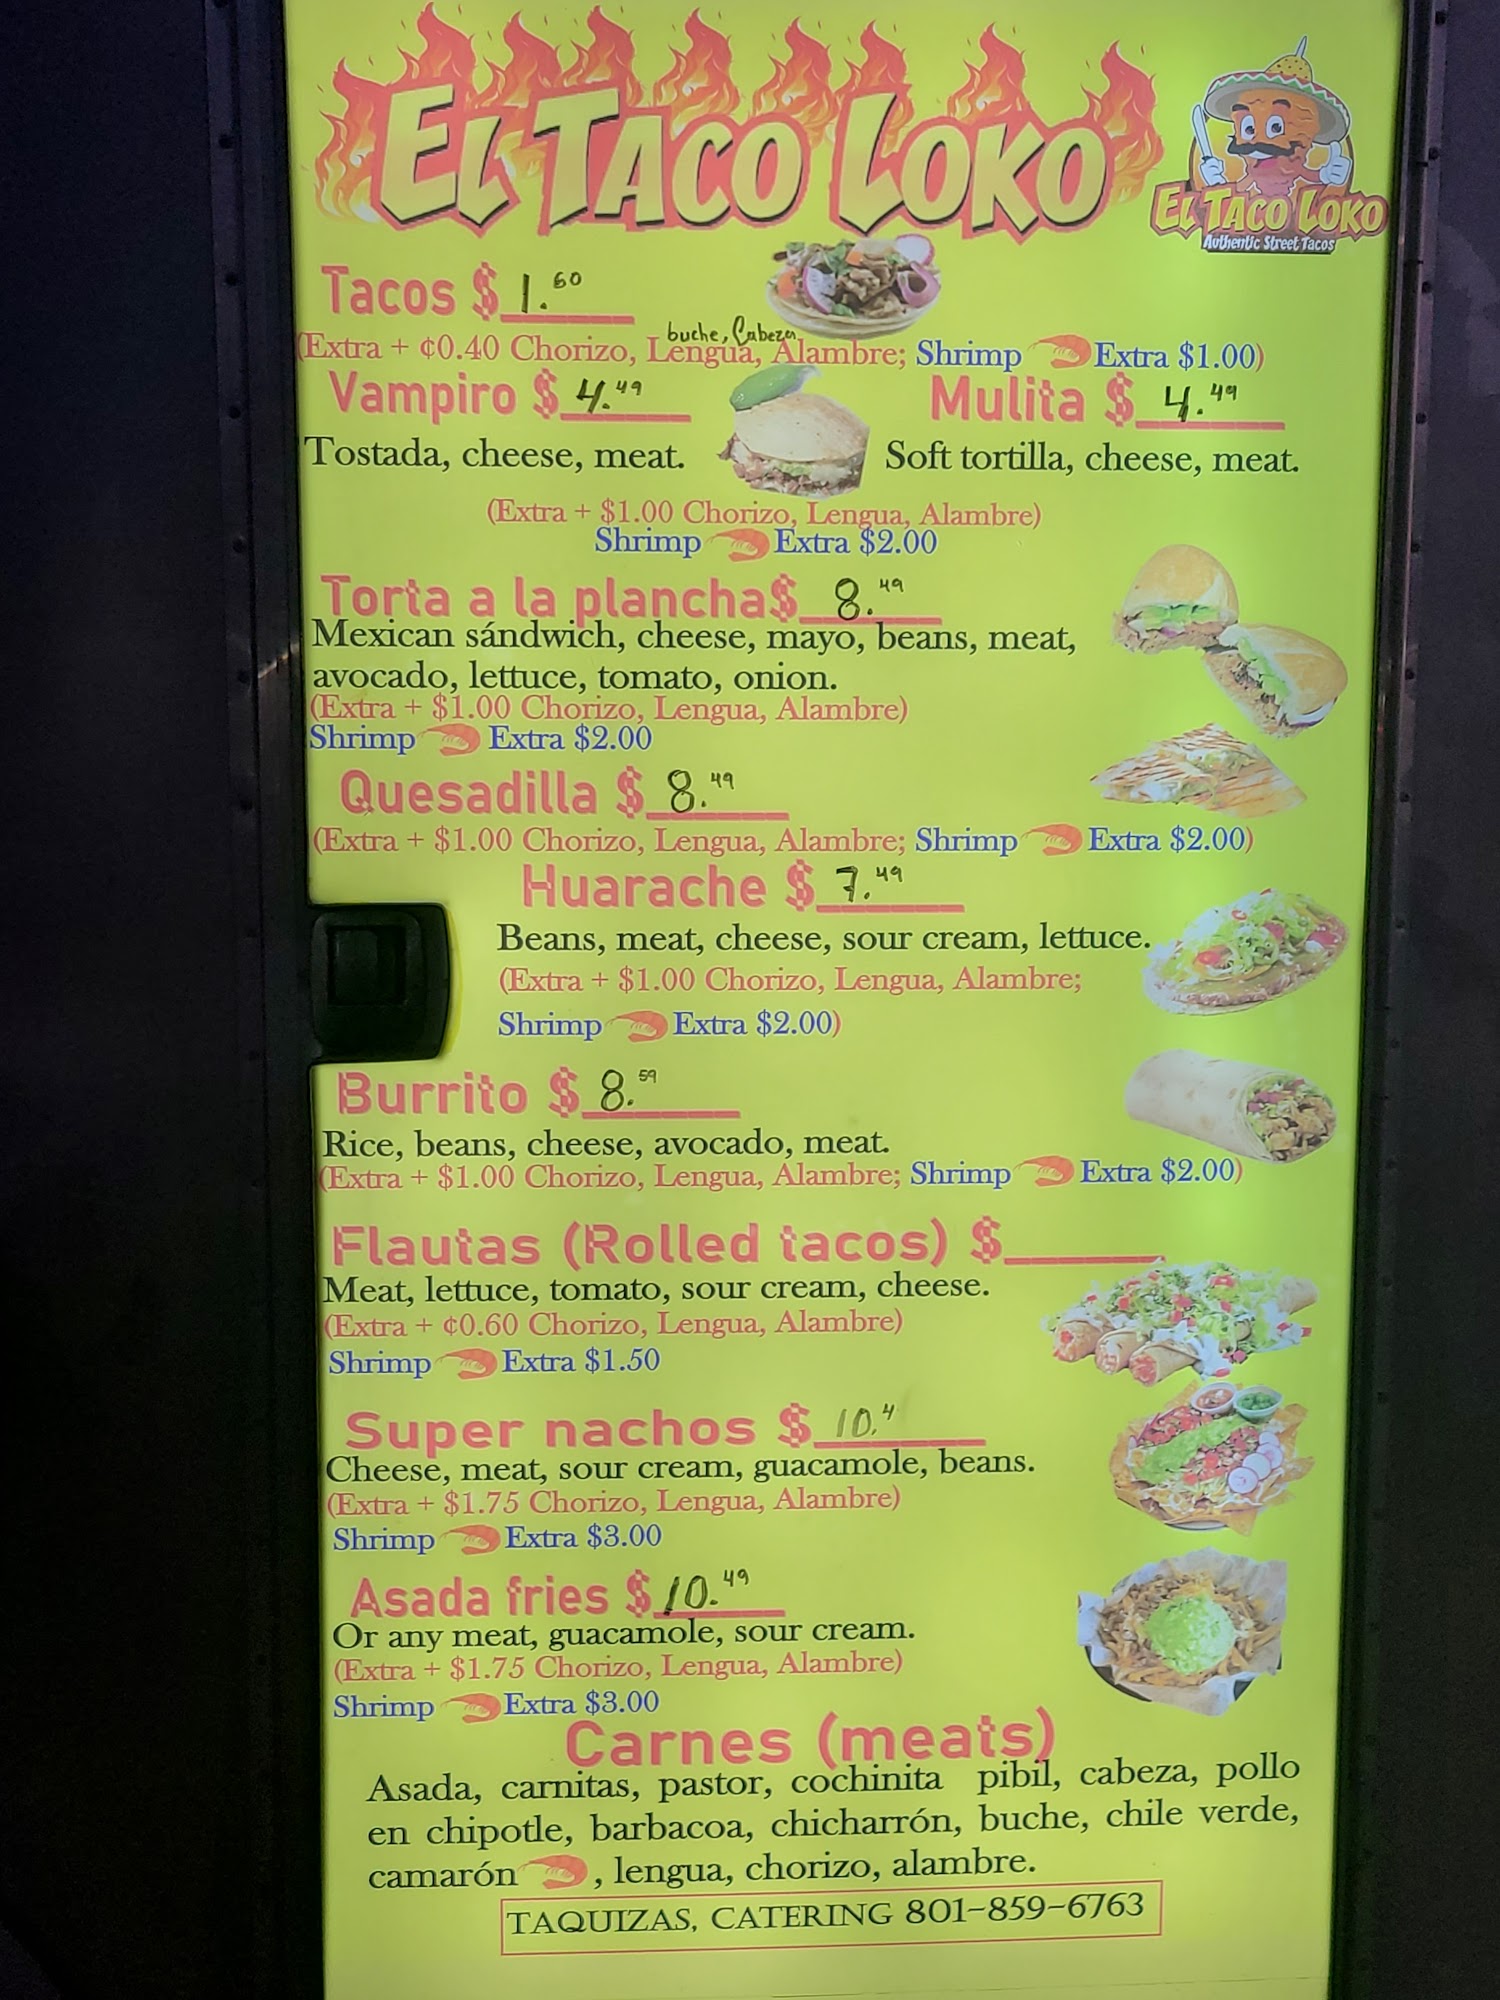 EL TACO LOKO
EL TACO LOKO
Authentic Street Tacos
Tacos $ 1.60
buche, Cabeza
(Extra + ¢0.40 Chorizo, Lengua, Alambre; Shrimp Extra $1.00)
Vampiro $ 4.49 Mulita $ 4.49
Tostada, cheese, meat. Soft tortilla, cheese, meat.
(Extra + $1.00 Chorizo, Lengua, Alambre)
Shrimp Extra $2.00
Torta a la plancha$ 8.49
Mexican sándwich, cheese, mayo, beans, meat,
avocado, lettuce, tomato, onion.
(Extra + $1.00 Chorizo, Lengua, Alambre)
Shrimp Extra $2.00
Quesadilla $ 8.49
(Extra + $1.00 Chorizo, Lengua, Alambre; Shrimp Extra $2.00)
Huarache $ 7.49
Beans, meat, cheese, sour cream, lettuce.
(Extra + $1.00 Chorizo, Lengua, Alambre;
Shrimp Extra $2.00)
Burrito $ 8.59
Rice, beans, cheese, avocado, meat.
(Extra + $1.00 Chorizo, Lengua, Alambre; Shrimp Extra $2.00)
Flautas (Rolled tacos) $
Meat, lettuce, tomato, sour cream, cheese.
(Extra + ¢0.60 Chorizo, Lengua, Alambre)
Shrimp Extra $1.50
Super nachos $ 10.4
Cheese, meat, sour cream, guacamole, beans.
(Extra + $1.75 Chorizo, Lengua, Alambre)
Shrimp Extra $3.00
Asada fries $ 10.49
Or any meat, guacamole, sour cream.
(Extra + $1.75 Chorizo, Lengua, Alambre)
Shrimp Extra $3.00
Carnes (meats)
Asada, carnitas, pastor, cochinita pibil, cabeza, pollo
en chipotle, barbacoa, chicharrón, buche, chile verde,
camarón , lengua, chorizo, alambre.
TAQUIZAS, CATERING 801-859-6763